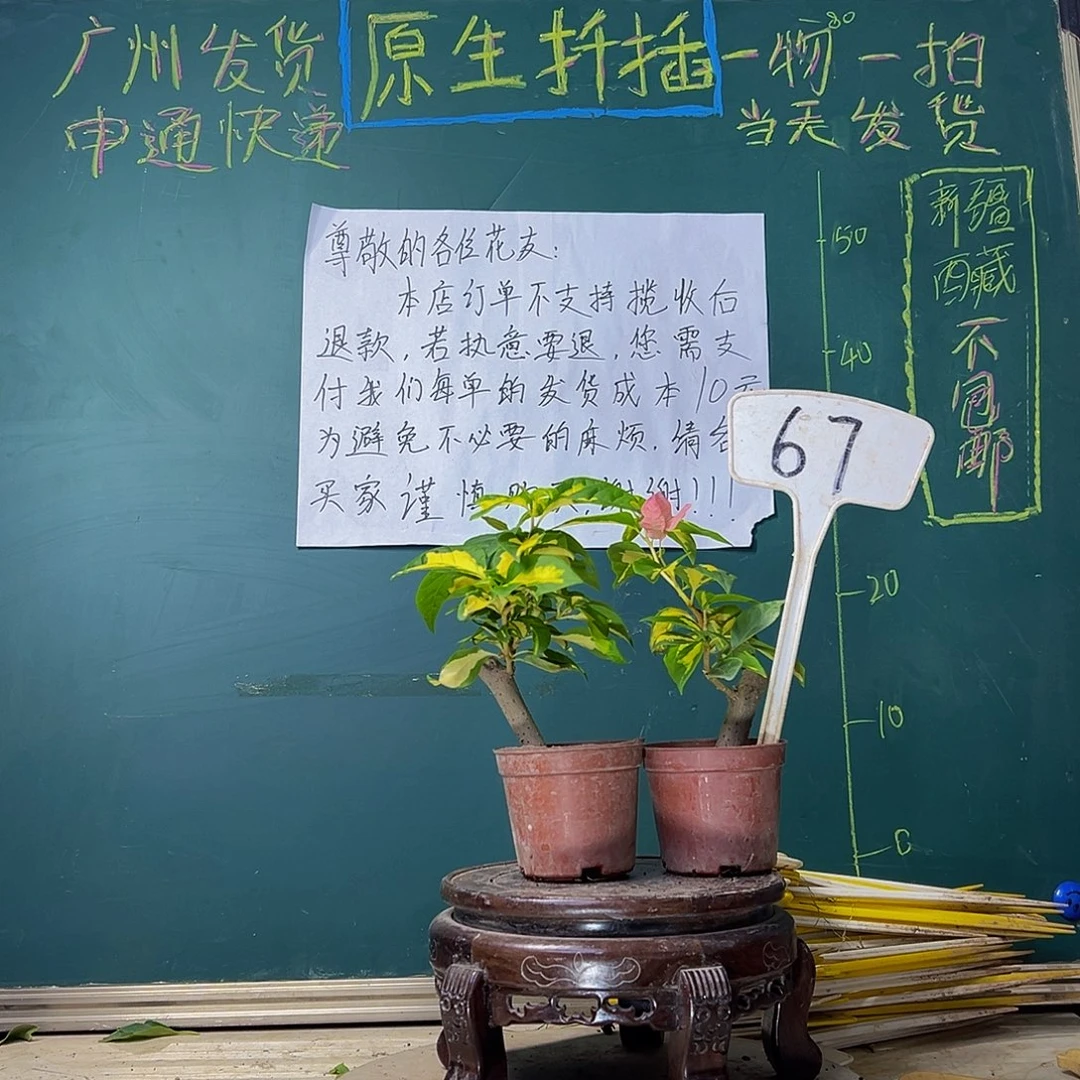 广州发货
申通快递
原生扦插
一物一拍
当天发货
80
50
40
20
10
0
新疆
西藏
不包邮
尊敬的各位花友：
本店订单不支持揽收后
退款，若执意要退，您需支
付我们每单的发货成本10元
为避免不必要的麻烦，请各
买家谨慎
谢谢!!!
67